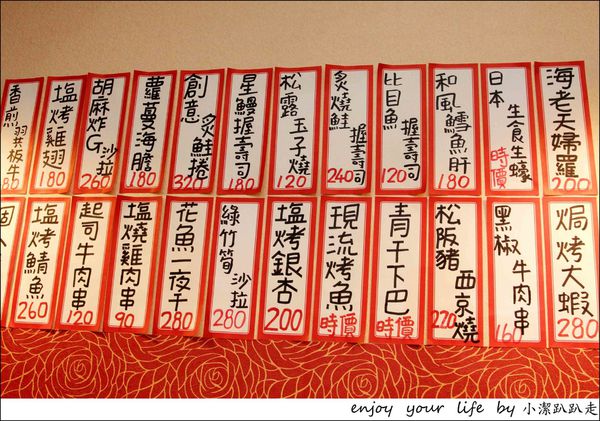 海老天婦羅 200
日本 生食生蠔 時價
和風鱈魚肝 180
比目魚 握壽司 120
炙燒鮭 握壽司 240
松露 玉子燒 120
星鰻握壽司 180
創意 炙鮭捲 320
蘿蔓海膽 180
胡麻炸G 沙拉 260
塩烤雞翅 180
香煎 板牛
焗烤大蝦 280
黑椒 牛肉串 160
松阪豬 西京燒 220
青干下巴 時價
現流烤魚 時價
塩烤銀杏 200
綠竹筍 沙拉 280
花魚一夜干 280
塩燒雞肉串 90
起司牛肉串 120
塩烤鯖魚 260
enjoy your life by 小潔趴趴走